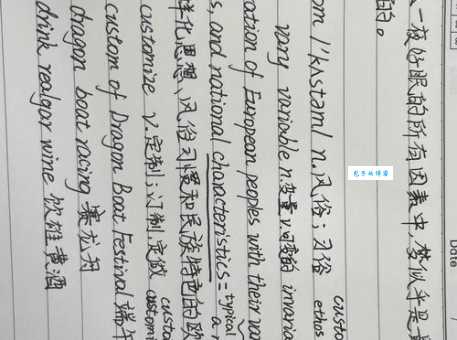 一夜好眠的所有因素中,梦似乎是最
的。
custo
om /ˈkʌstəm/ n.风俗;习俗 ethos
vary variable n.变量 v.可变的 invaria
ration of European peoples with their va
s, and national characteristics = typical
样化思想、风俗习惯和民族特色的欧
custo
customize v.定制;订制,定做 customi
custom of Dragon Boat Festival 端午
dragon boat racing 赛龙舟
drink realgar wine 饮雄黄酒
Date